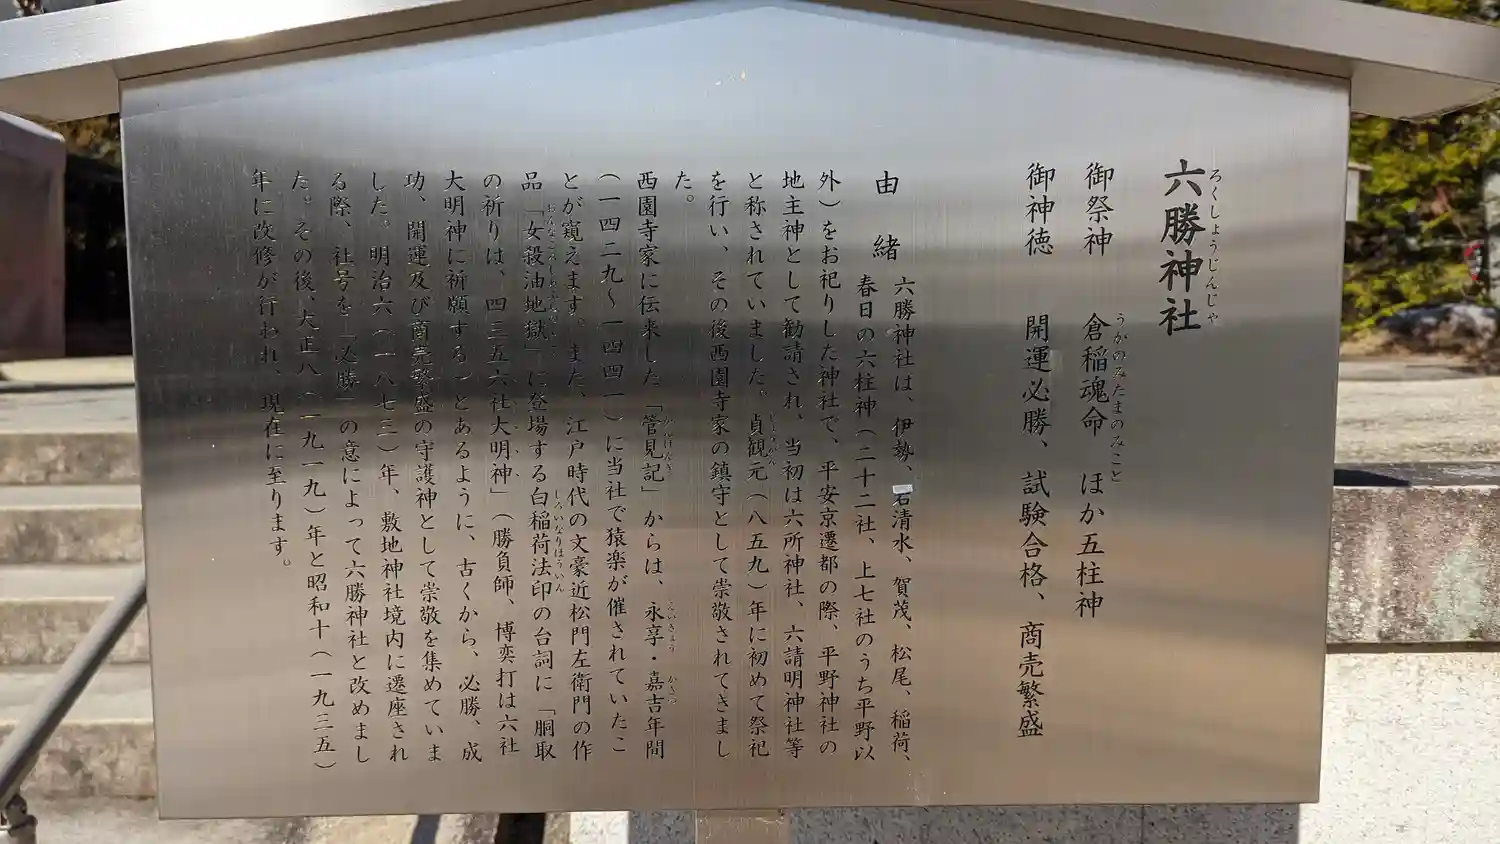 六勝神社
ろくしょうじんじゃ
御祭神　倉稲魂命　ほか五柱神
うかのみたまのみこと
御神徳　開運必勝、試験合格、商売繁盛
由緒
六勝神社は、伊勢、石清水、賀茂、松尾、稲荷、
春日の六柱神（二十二社、上七社のうち平野以
外）をお祀りした神社で、平安京遷都の際、平野神社の
地主神として勧請され、当初は六所神社、六請明神社等
と称されていました。貞観元（八五九）年に初めて祭祀
じょうがん
を行い、その後西園寺家の鎮守として崇敬されてきまし
た。
西園寺家に伝来した「管見記」からは、永享・嘉吉年間
かんけんき　えいきょう　かきつ
（一四二九〜一四四一）に当社で猿楽が催されていたこ
とが窺えます。また、江戸時代の文豪近松門左衛門の作
品「女殺油地獄」に登場する白稲荷法印の台詞に「胴取
おんなころしあぶらのじごく　しろいなりほういん
の祈りは、四三五六社大明神」（勝負師、博奕打は六社
大明神に祈願する）とあるように、古くから、必勝、成
功、開運及び商売繁盛の守護神として崇敬を集めていま
した。明治六（一八七三）年、敷地神社境内に遷座され
る際、社号を「必勝」の意によって六勝神社と改めまし
た。その後、大正八（一九一九）年と昭和十（一九三五）
年に改修が行われ、現在に至ります。